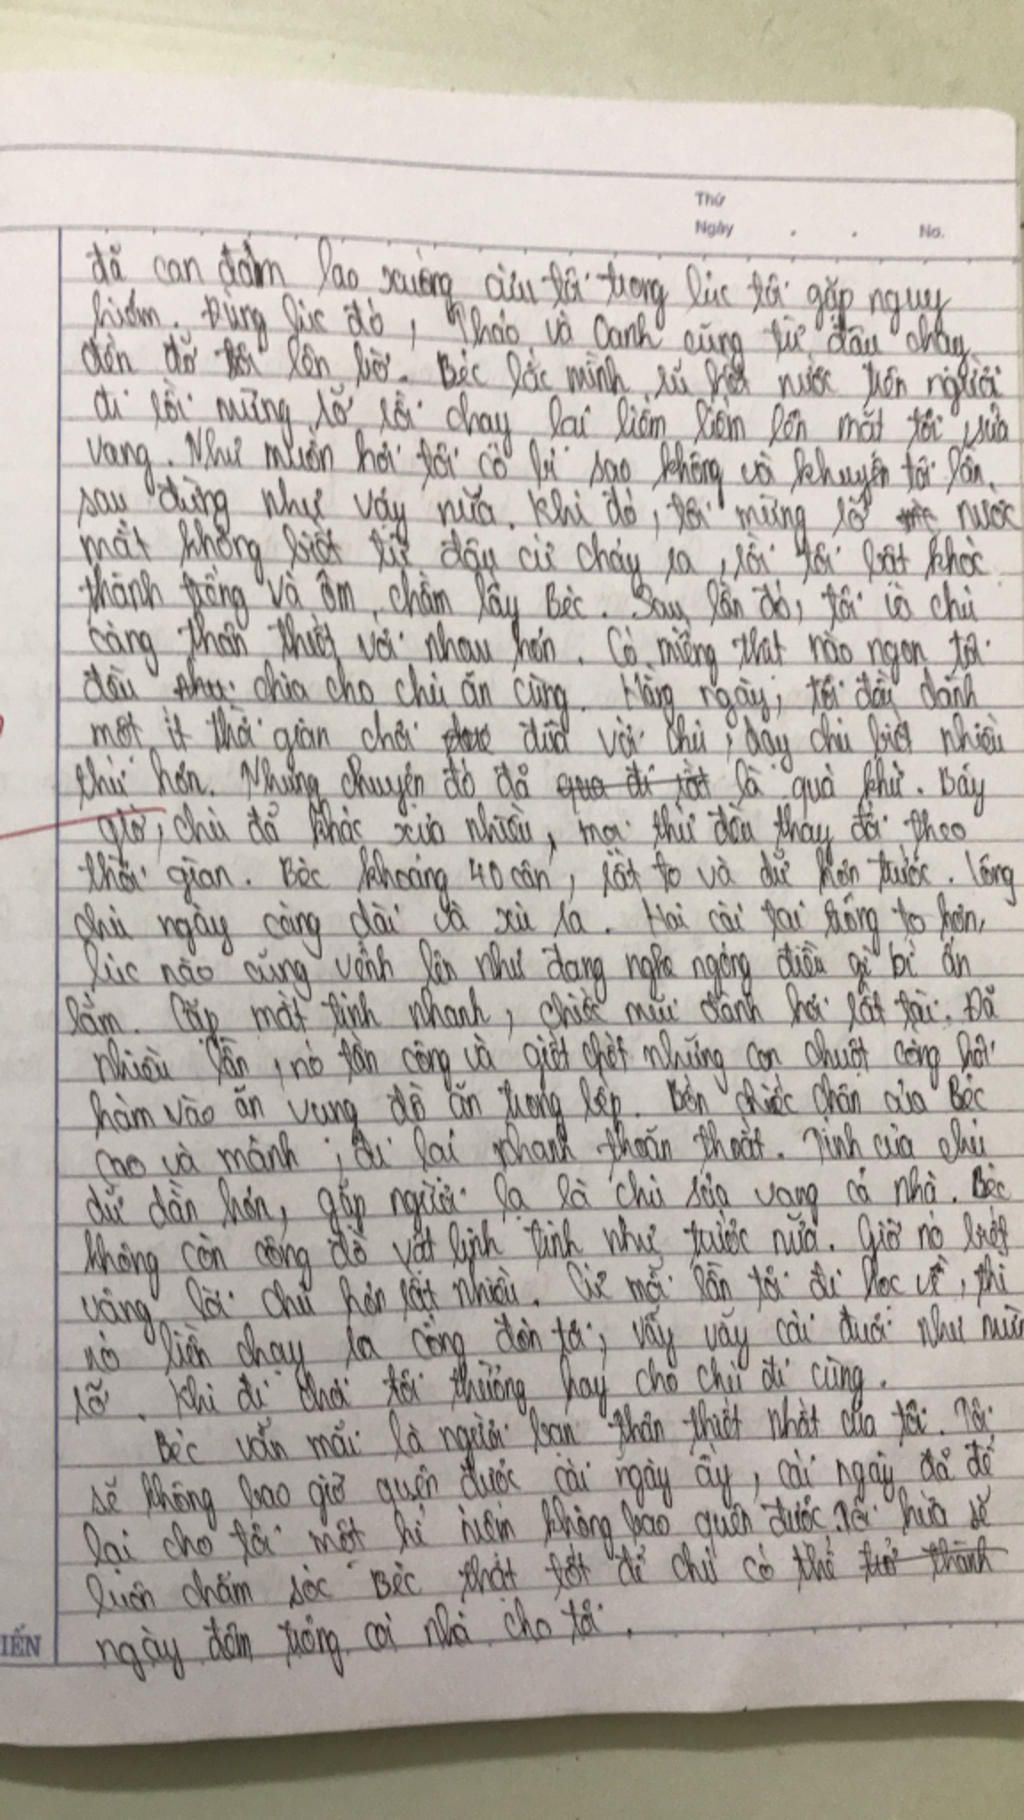 Thứ
Ngày . . No.
đã can đảm lao xuống cứu tôi trong lúc tôi gặp nguy
hiểm. Đúng lúc đó, Thảo và Oanh cũng từ đâu chạy
đến đỡ tôi lên bờ. Béc lắc mình rũ hết nước trên người
đi rồi mừng rỡ rồi chạy lại liếm liếm lên mặt tôi sủa
vang. Như muốn hỏi tôi có bị sao không và khuyên tôi lần
sau đừng như vậy nữa. Khi đó, tôi mừng rỡ nước
mắt không biết từ đâu cứ chảy ra, rồi tôi bật khóc
thành tiếng và ôm chầm lấy Béc. Sau lần đó, tôi và chú
càng thân thiết với nhau hơn. Có miếng thịt nào ngon tôi
đều chia cho chú ăn cùng. Hằng ngày, tôi đều dành
một ít thời gian chơi đùa với chú, dạy chú biết nhiều
thứ hơn. Nhưng chuyện đó đã qua đi rất là quá khứ. Bây
giờ, chú đã khác xưa nhiều, mọi thứ đều thay đổi theo
thời gian. Béc khoảng 40 cân, rất to và dữ hơn trước. Lông
chú ngày càng dài và xù ra. Hai cái tai trông to hơn,
lúc nào cũng vểnh lên như đang nghe ngóng điều gì bí ẩn
lắm. Cặp mắt tinh nhanh, chiếc mũi đánh hơi rất tài. Đã
nhiều lần, nó tấn công và giết chết những con chuột cống hôi
hám vào ăn vụng đồ ăn trong bếp. Bốn chiếc chân của Béc
cao và mảnh, đi lại nhanh thoăn thoắt. Tính của chú
dữ dằn hơn, gặp người lạ là chú sủa vang cả nhà. Béc
không còn cõng đồ vật linh tinh như trước nữa. Giờ nó biết
vâng lời chủ hơn rất nhiều. Cứ mỗi lần tôi đi học về, thì
nó liền chạy ra cổng đón tôi, vẫy vẫy cái đuôi như mừn
rỡ. Khi đi chơi tôi thường hay cho chú đi cùng.
Béc vẫn mãi là người bạn thân thiết nhất của tôi. Tôi
sẽ không bao giờ quên được cái ngày ấy, cái ngày đã để
lại cho tôi một kỉ niệm không bao quên được. Tôi hứa sẽ
luôn chăm sóc Béc thật tốt để chú có thể trở thành
ngày đêm trông coi nhà cho tôi.
IẾN